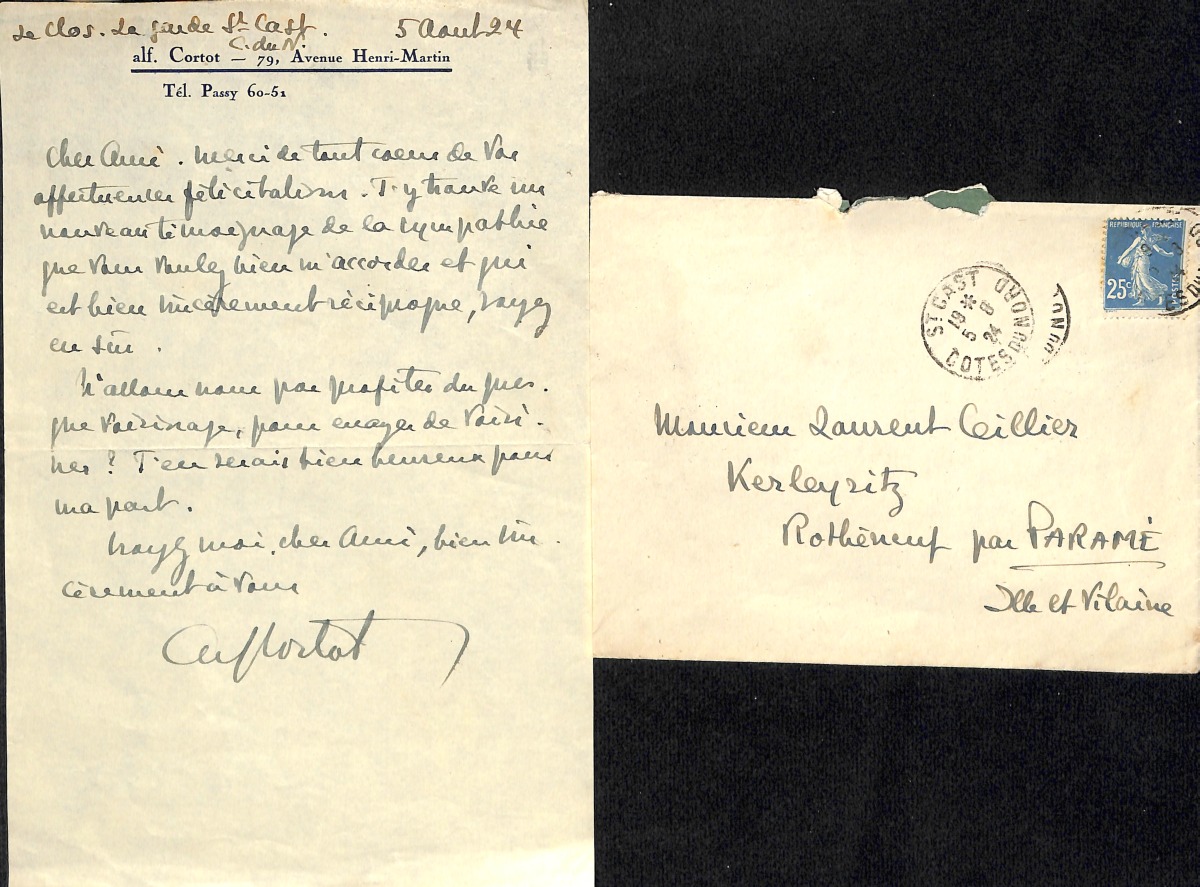 Le Clos. La garde St Cast.
C. du N.
5 Aout 24
alf. Cortot — 79, Avenue Henri-Martin
Tél. Passy 60-51
Cher Ami. Merci de tout coeur de vos
affectueuses félicitations. J'y trouve un
nouveau témoignage de la sympathie
que vous voulez bien m'accorder et qui
est bien sincèrement réciproque, soyez
en sûr.
N'allons nous pas profiter du pres-
que voisinage, pour essayer de voisi-
ner? J'en serais bien heureux pour
ma part.
Croyez moi, cher Ami, bien sin-
cèrement à vous
Alf Cortot
REPUBLIQUE FRANÇAISE
25c
POSTES
ST CAST
19 *
5 - 8
24
COTES DU NORD
Monsieur Laurent Ceillier
Kerleyritz
Rothéneuf par PARAMÉ
Ille et Vilaine